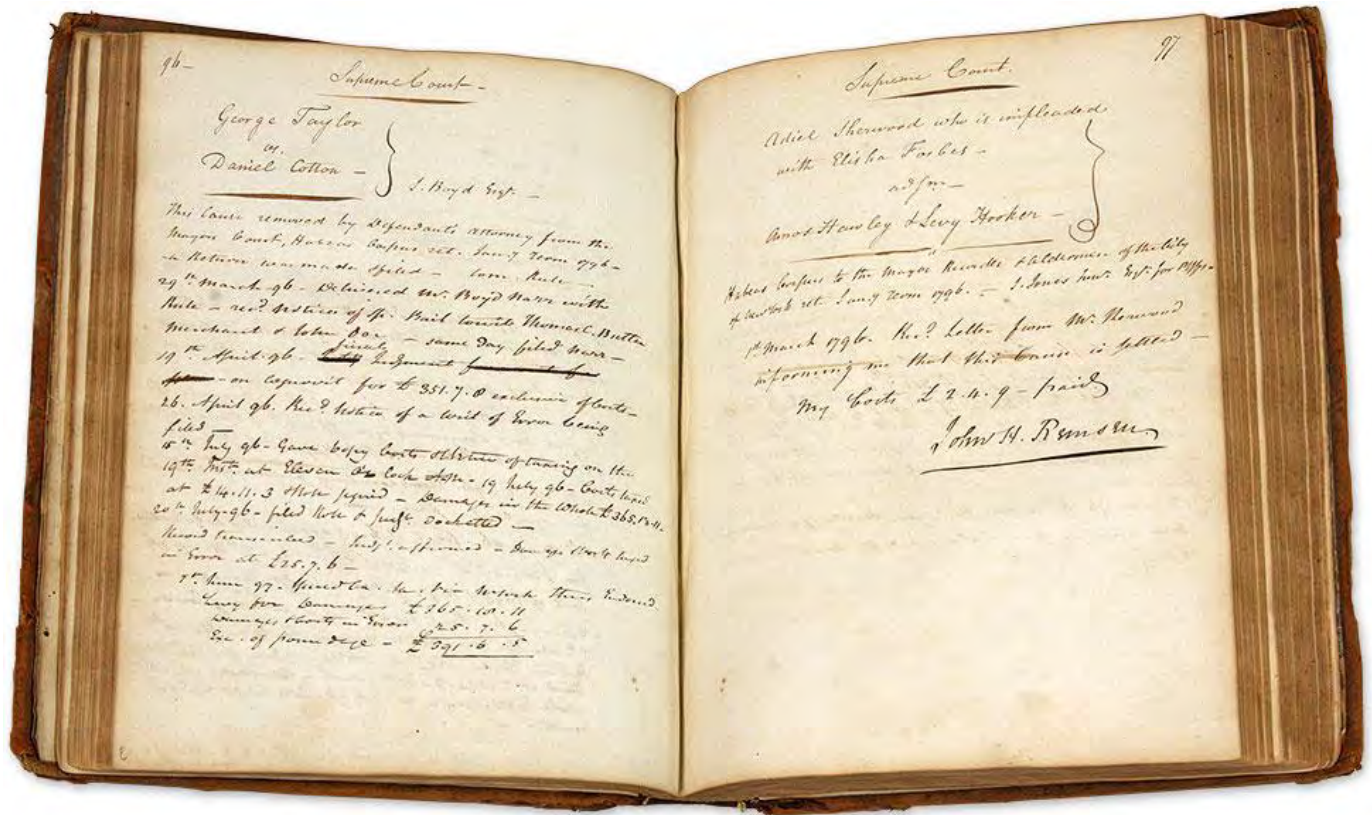 96-
Supreme Court -
George Taylor
vs.
Daniel Cotton -
S. Boyd Esqr. -
This Cause removed by Defendants attorney from the
Mayors Court, Habeas Corpus ret. Jany Term 1796 -
a Return was made & filed - Com. Rule -
29th March 96 - Delivered Mr. Boyd Narr with
Rule - recd. Notice of sp. Bail Thomas C. Butler
Merchant & John Doe - same Day filed Narr -
finaly
19th April 96 - Judgment
- on Cognovit for £ 351.7.8 exclusive of Costs -
26. April 96. Recd. Notice of a Writ of Error being
filed -
15th July 96 - Gave Copy Costs & Notice of taxing on the
19th Inst. at Eleven O Clock - 19 July 96 - Costs taxed
at £ 14.11.3 & Role signed - Damages in the Whole £ 365.18.11.
20th July 96 - filed Role & Judgt. docketted -
Record - Judgt. affirmed - Damages & Costs taxed
in Error at £25.7.6 -
7th June 97. Issued Ca. Sa. Endorsed
Levy for Damages £ 365.18.11
Damages & Costs in Error 25.7.6
Exc. of poundage - £ 391.6.5
97
Supreme Court.
Adiel Sherwood who is impleaded
with Elisha Forbes -
ads m -
Amos Hawley & Levy Hooker -
Habeas Corpus to the Mayor Recorder & Aldermen of the City
of New York ret. Jany Term 1796. - S. Jones Junr. Esqr. for Plffs -
1st March 1796. Recd. Letter from Mr. Norwood
informing me that this Cause is settled -
My Costs £ 2.4.9 - paid
John H. Remsen